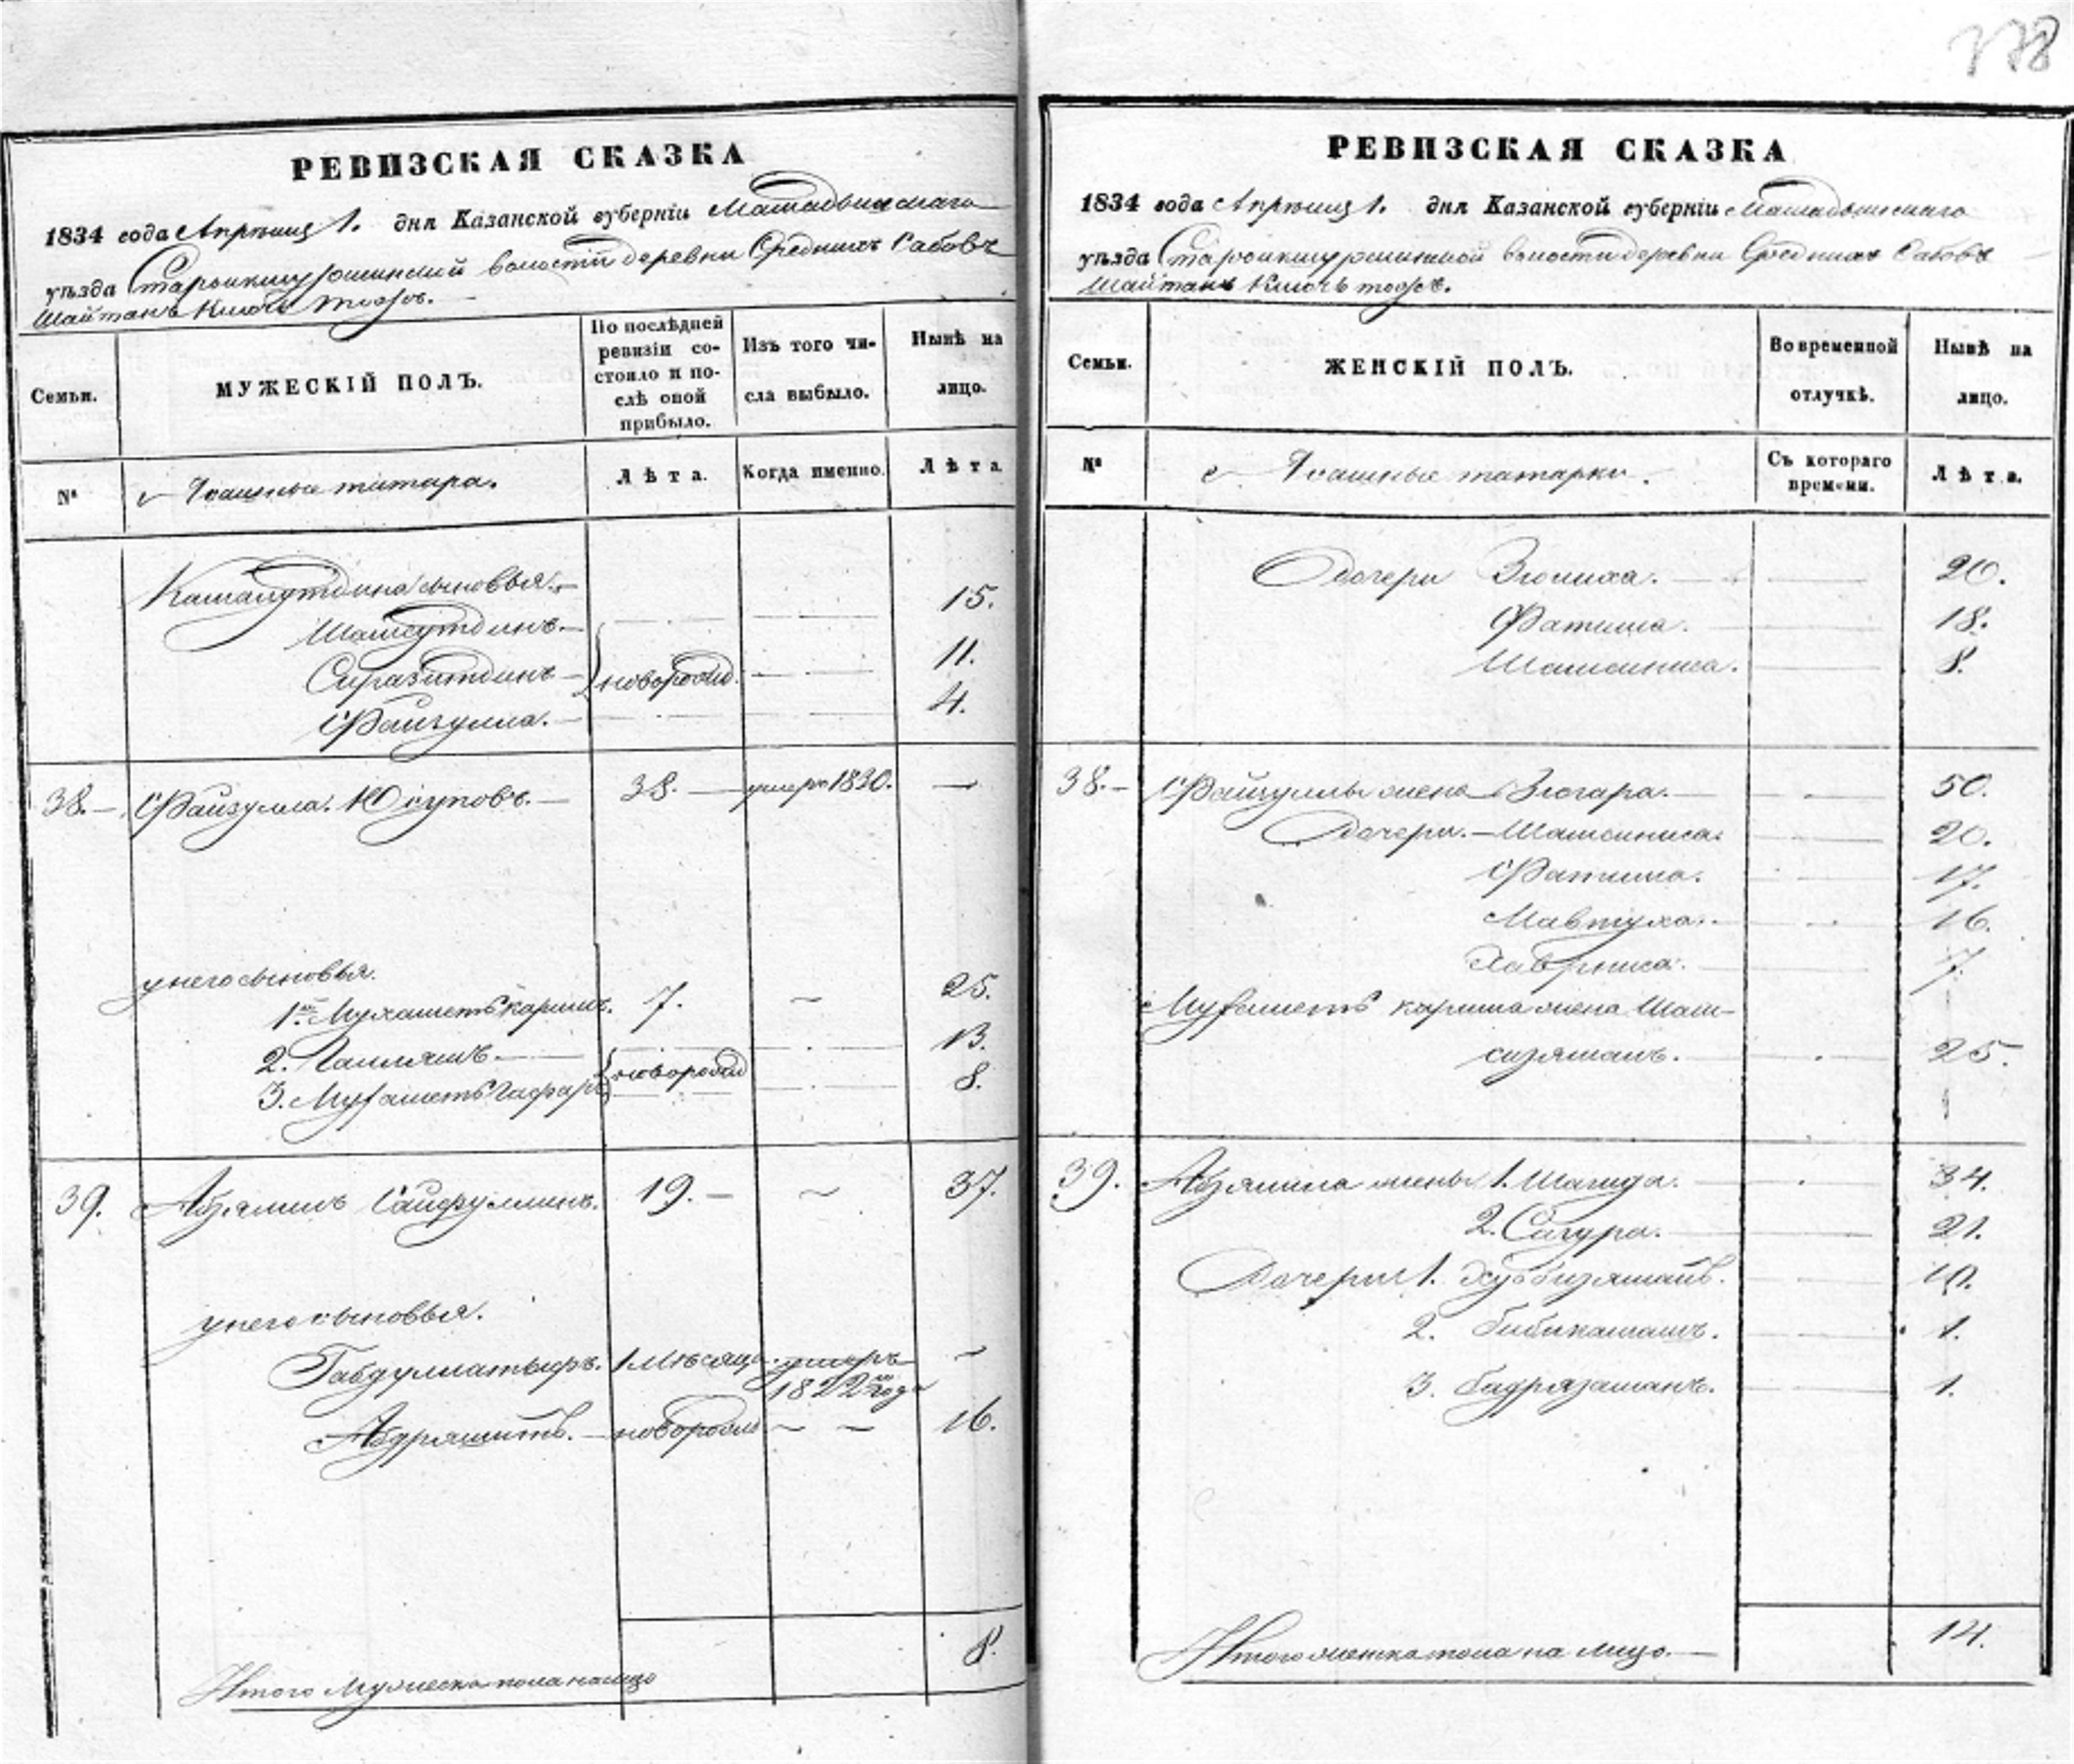 378
РЕВИЗСКАЯ СКАЗКА
1834 года Апрѣля 1. дня Казанской губерніи Мамадышскаго
уѣзда Староикшурминской волости деревни Среднихъ Сабовъ
Шайтанъ Ключь тожъ.
Семьи.
МУЖЕСКІЙ ПОЛЪ.
По послѣдней
ревизіи со-
стояло и по-
слѣ оной
прибыло.
Изъ того чи-
сла выбыло.
Нынѣ на
лицо.
№
Ясашные татара.
Лѣта.
Когда именно.
Лѣта
Камалутдина сыновья.
Шамсутдинъ. 15.
Сиразитдинъ новорожд. 11.
Файзулла. 4.
38. Файзулла Юсуповъ. 38. умеръ 1830.
у него сыновья.
1й Мухаметъ каримъ. 7. 25.
2. 13.
3. Мухаметъ гафаръ новорожд 8.
39. Абзялилъ Сайфуллинъ. 19. 37.
у него сыновья.
Габдулматыръ. 1 мѣсяць. умеръ
1822го года
Абдряшитъ. новорожд 16.
Итого мужеска пола налицо 8.
РЕВИЗСКАЯ СКАЗКА
1834 года Апрѣля 1. дня Казанской губерніи Мамадышскаго
уѣзда Староикшурминской волости деревни Среднихъ Сабовъ
Шайтанъ Ключь тожъ.
Семьи.
ЖЕНСКІЙ ПОЛЪ.
Во временной
отлучкѣ.
Нынѣ на
лицо.
№
Ясашные татарки.
Съ котораго
времени.
Лѣта.
Дочери Зюлиха. 20.
Фатима. 18.
Шамсиниса. 8.
38. Файзуллы жена Зюгара. 50.
Дочери. Шамсиниса. 20.
Фатима. 17.
Мавтуха. 16.
7.
Мухаметъ карима жена Шам-
сизяманъ. 25.
39. Абзялила жены 1. Шагида. 34.
2. Сагура. 21.
Дочери 1. Хуббизямалъ. 10.
2. Бибикамалъ. 1.
3. Бадрязаманъ. 1.
Итого женска пола на лицо. 14.